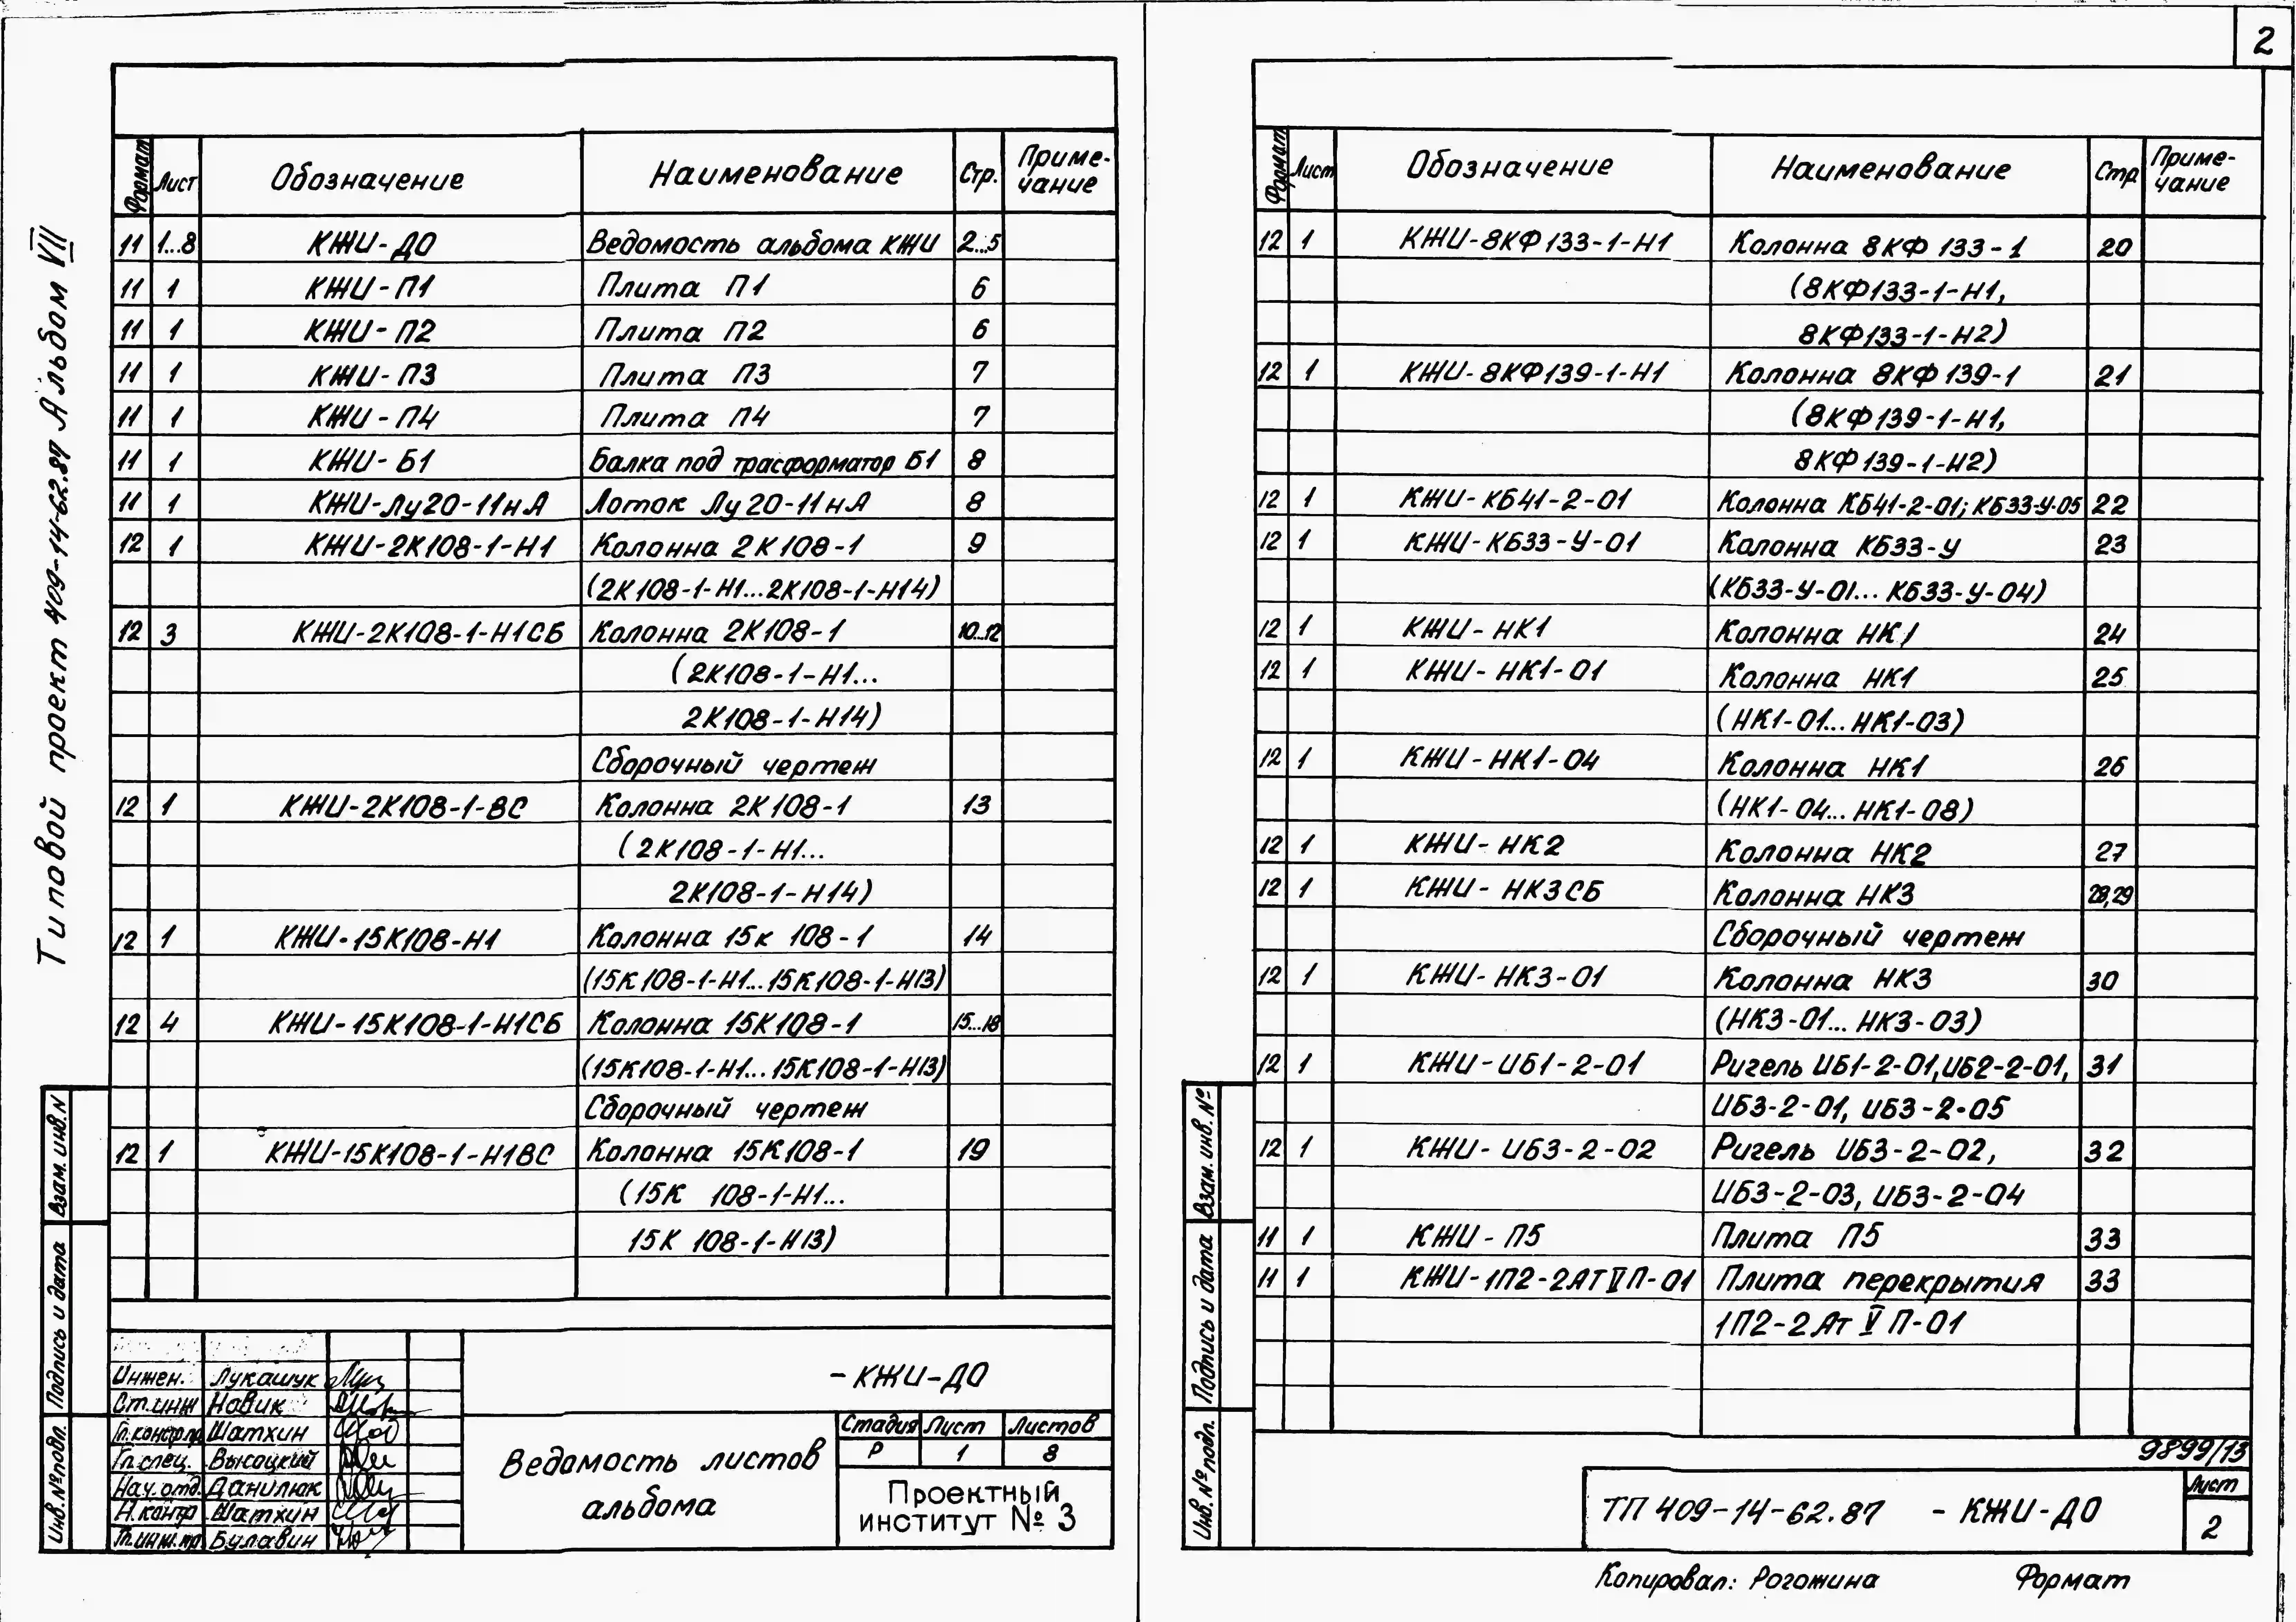 2
Типовой проект 409-14-62.87 Альбом VII
Формат Лист Обозначение Наименование Стр. Приме-
чание
11 1...8 КЖИ-ДО Ведомость альбома КЖИ 2...5
11 1 КЖИ-П1 Плита П1 6
11 1 КЖИ-П2 Плита П2 6
11 1 КЖИ-П3 Плита П3 7
11 1 КЖИ-П4 Плита П4 7
11 1 КЖИ-Б1 Балка под трасформатор Б1 8
11 1 КЖИ-Лу20-11нА Лоток Лу20-11нА 8
12 1 КЖИ-2К108-1-Н1 Колонна 2К108-1 9
(2К108-1-Н1...2К108-1-Н14)
12 3 КЖИ-2К108-1-Н1СБ Колонна 2К108-1 10...12
(2К108-1-Н1...
2К108-1-Н14)
Сборочный чертеж
12 1 КЖИ-2К108-1-ВС Колонна 2К108-1 13
(2К108-1-Н1...
2К108-1-Н14)
12 1 КЖИ-15К108-Н1 Колонна 15к 108-1 14
(15К108-1-Н1...15К108-1-Н13)
12 4 КЖИ-15К108-1-Н1СБ Колонна 15К108-1 15...18
(15К108-1-Н1...15К108-1-Н13)
Сборочный чертеж
12 1 КЖИ-15К108-1-Н1ВС Колонна 15К108-1 19
(15К 108-1-Н1...
15К 108-1-Н13)
Взам. инв. N
Подпись и дата
Инв. № подл.
Инжен. Лукашук
Ст. инж Новик
Гл. констр. пр. Шатхин
Гл. спец. Высоцкий
Нач. отд. Данилюк
Н. контр Шатхин
Гл. инж. пр. Булавин
-КЖИ-ДО
Ведомость листов
альбома
Стадия Лист Листов
Р 1 8
Проектный
институт № 3
Формат Лист Обозначение Наименование Стр Приме-
чание
12 1 КЖИ-8КФ133-1-Н1 Колонна 8КФ 133-1 20
(8КФ133-1-Н1,
8КФ133-1-Н2)
12 1 КЖИ-8КФ139-1-Н1 Колонна 8КФ139-1 21
(8КФ139-1-Н1,
8КФ139-1-Н2)
12 1 КЖИ-КБ41-2-01 Колонна КБ41-2-01; КБ33-У-05 22
12 1 КЖИ-КБ33-У-01 Колонна КБ33-У 23
(КБ33-У-01... КБ33-У-04)
12 1 КЖИ-НК1 Колонна НК1 24
12 1 КЖИ-НК1-01 Колонна НК1 25
(НК1-01... НК1-03)
12 1 КЖИ-НК1-04 Колонна НК1 26
(НК1-04... НК1-08)
12 1 КЖИ-НК2 Колонна НК2 27
12 1 КЖИ-НК3СБ Колонна НК3 28,29
Сборочный чертеж
12 1 КЖИ-НК3-01 Колонна НК3 30
(НК3-01... НК3-03)
12 1 КЖИ-ИБ1-2-01 Ригель ИБ1-2-01, ИБ2-2-01, 31
ИБ3-2-01, ИБ3-2-05
12 1 КЖИ-ИБ3-2-02 Ригель ИБ3-2-02, 32
ИБ3-2-03, ИБ3-2-04
11 1 КЖИ-П5 Плита П5 33
11 1 КЖИ-1П2-2АТVП-01 Плита перекрытия 33
1П2-2Ат V П-01
Взам. инв. №
Подпись и дата
Инв. № подл.
9899/13
ТП 409-14-62.87 -КЖИ-ДО
Лист
2
Копировал: Рогожина Формат